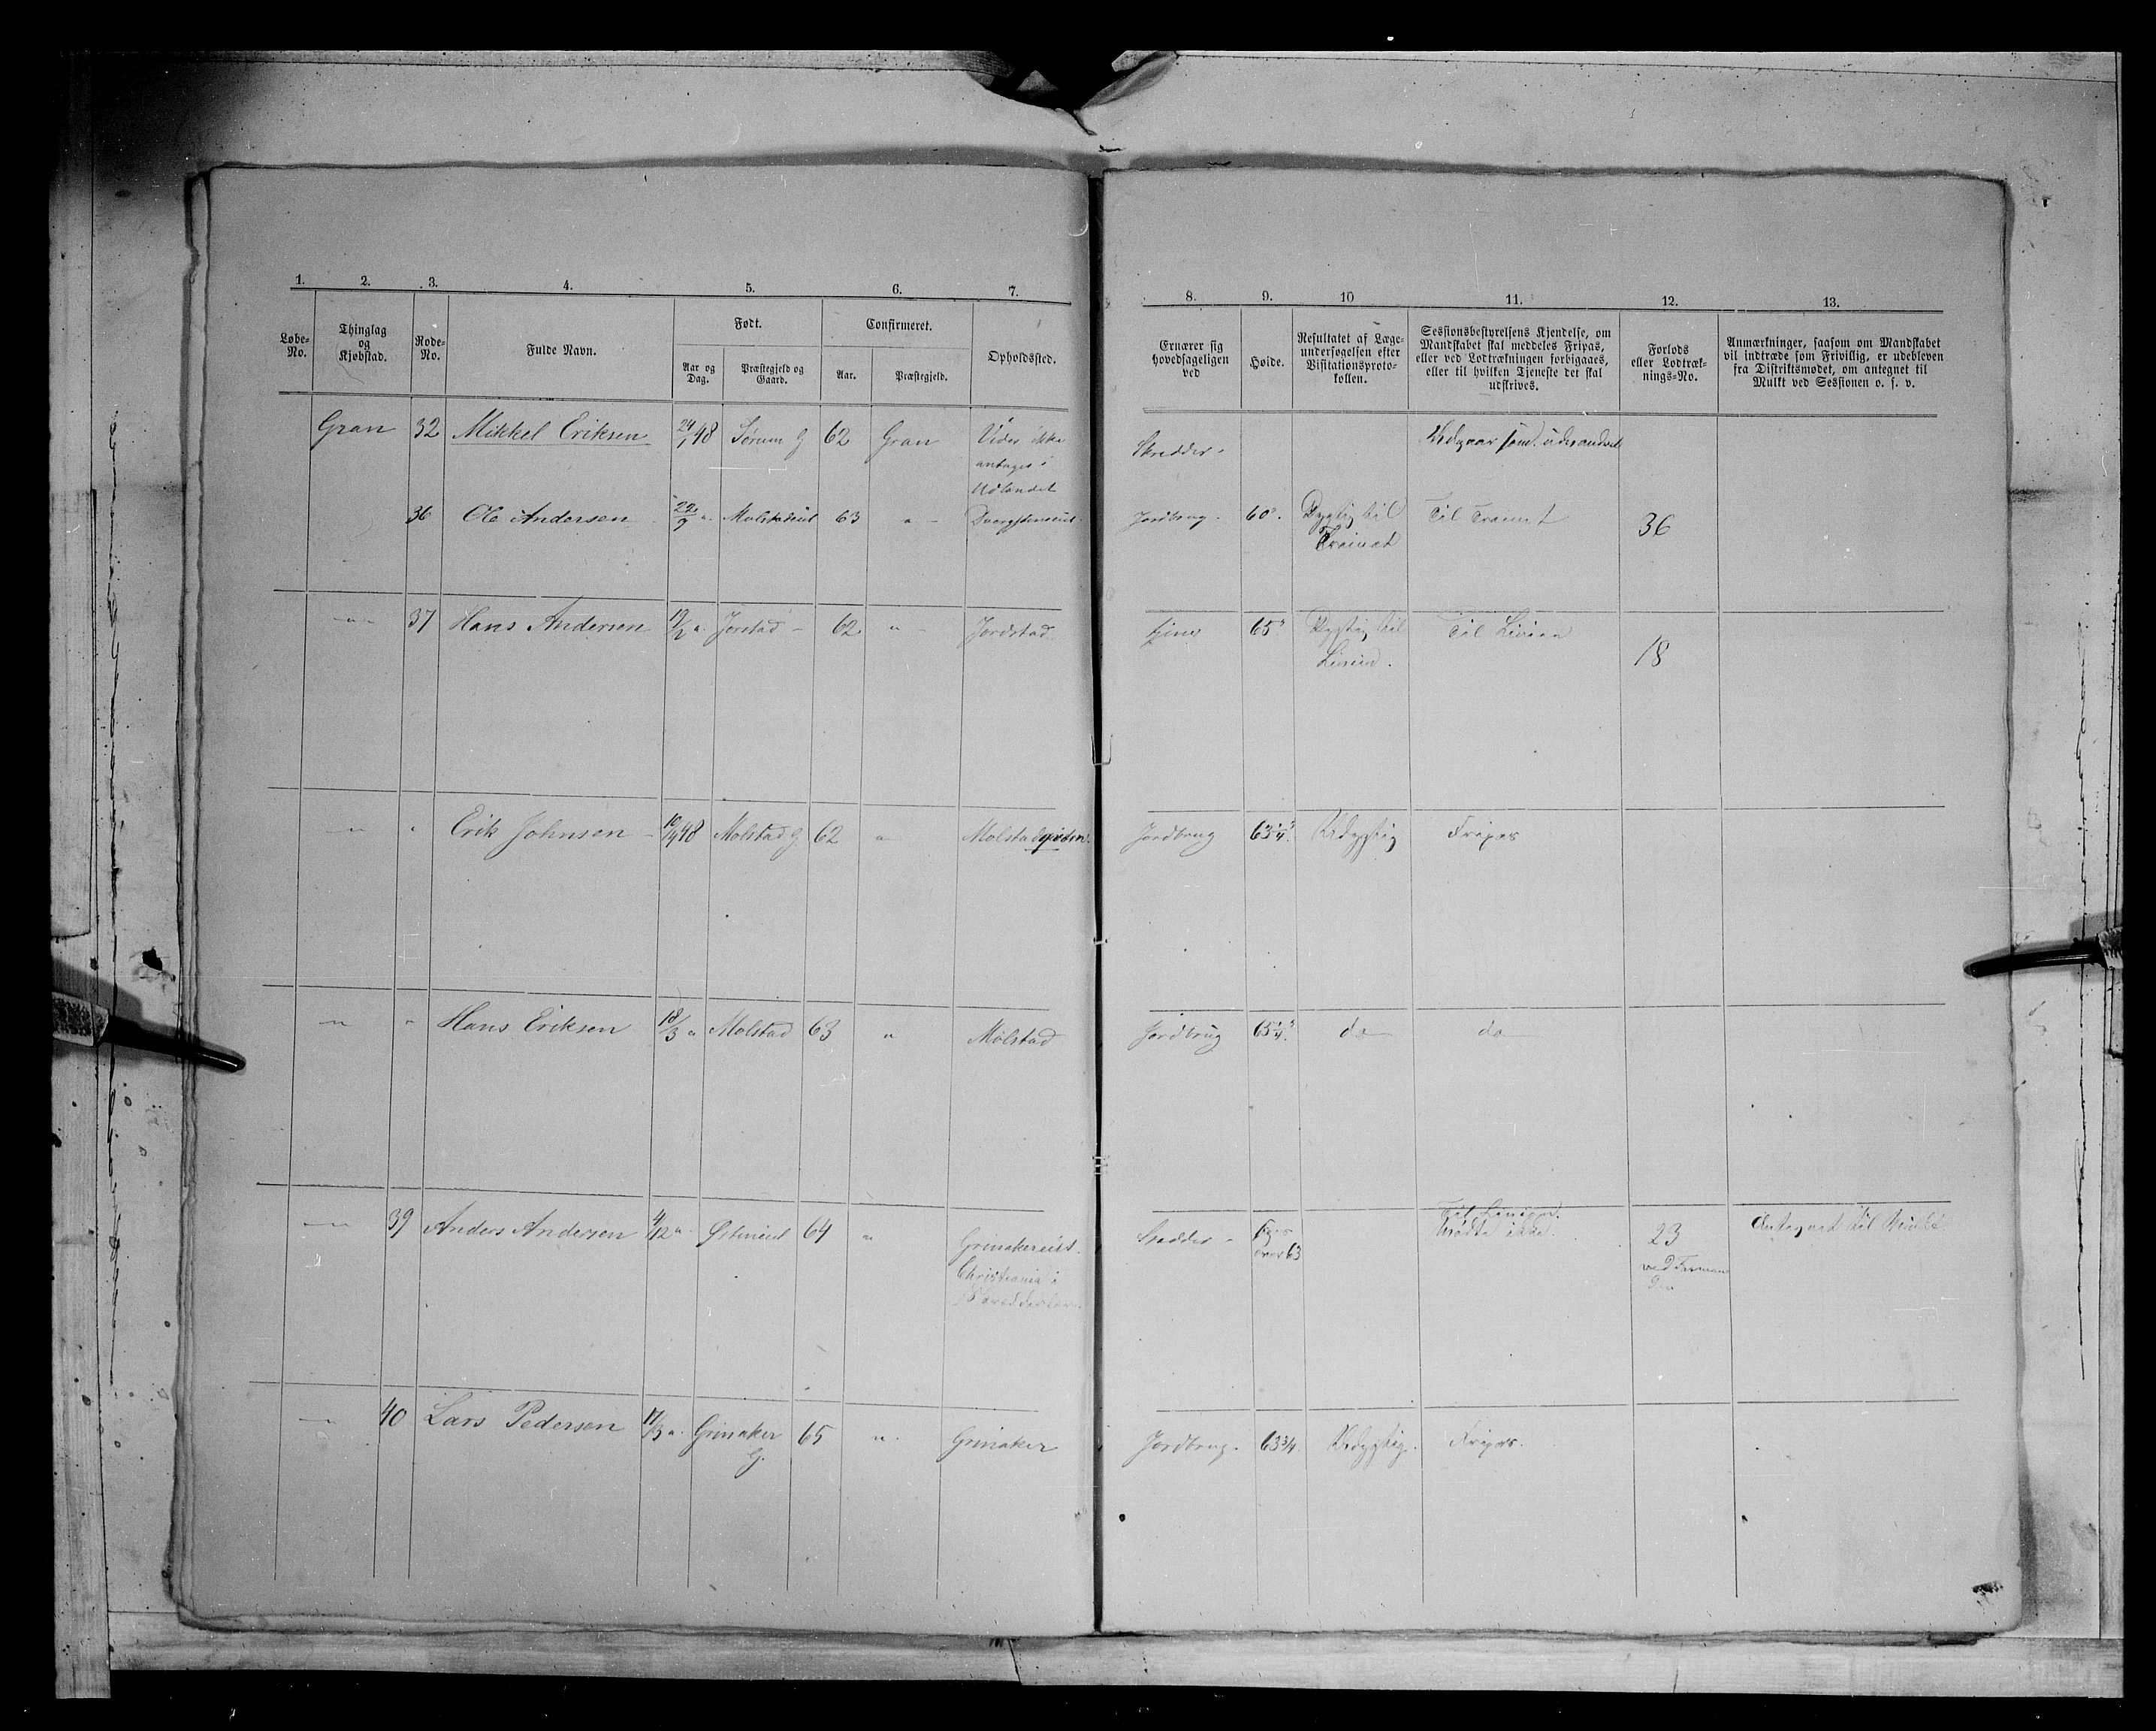 1. 2. 3. 4. 5. 6. 7.
Løbe-No. Thinglag og Kjøbstad. Rode-No. Fulde Navn. Født. Confirmeret. Opholdssted.
Aar og Dag. Præstegjeld og Gaard. Aar. Præstegjeld.
Gran 32 Mikkel Eriksen 24/1 48 Sørum G 62 Gran Vides ikke
antages i
Udlandet
36 Ole Andersen 22/9 " Molstadeiet 63 "
-"- 37 Hans Andersen 19/2 " Jorstad 62 " Jordstad
-"- " Erik Johnsen 10/4 48 Molstad G 62 " Molstadeiden
-"- " Hans Eriksen 18/3 " Molstad 63 " Molstad
-"- 39 Anders Andersen 4/12 " 64 " Grinakereiet
Christiania i
-"- 40 Lars Pedersen 17/3 " Grinaker G. 65 " Grinaker
8. 9. 10 11. 12. 13.
Ernærer sig hovedsageligen ved
Høide.
Resultatet af Læge-undersøgelsen efter Visitationsproto-kollen.
Sessionsbestyrelsens Kjendelse, om Mandskabet skal meddeles Fripas, eller ved Lodtrækningen forbigaaes, eller til hvilken Tjeneste det skal udskrives.
Forlods eller Lodtræk-nings-No.
Anmærkninger, saasom om Mandskabet vil indtræde som Frivillig, er udebleven fra Distriktsmødet, om antegnet til Mulkt ved Sessionen o. s. v.
Skredder Udgaar som udvandret
Jordbrug 60" Dygtig til Trainet Til Trainet 36
tjener 65" Dygtig til Linien. Til Linien 18
Jordbrug 63 1/4" Udygtig Fripas
Jordbrug 65 1/4" do do
63 Til Linien.
Mødte ikke. 23 Antegnet til Mulkt
Jordbrug 63 3/4 Udygtig. Fripas.